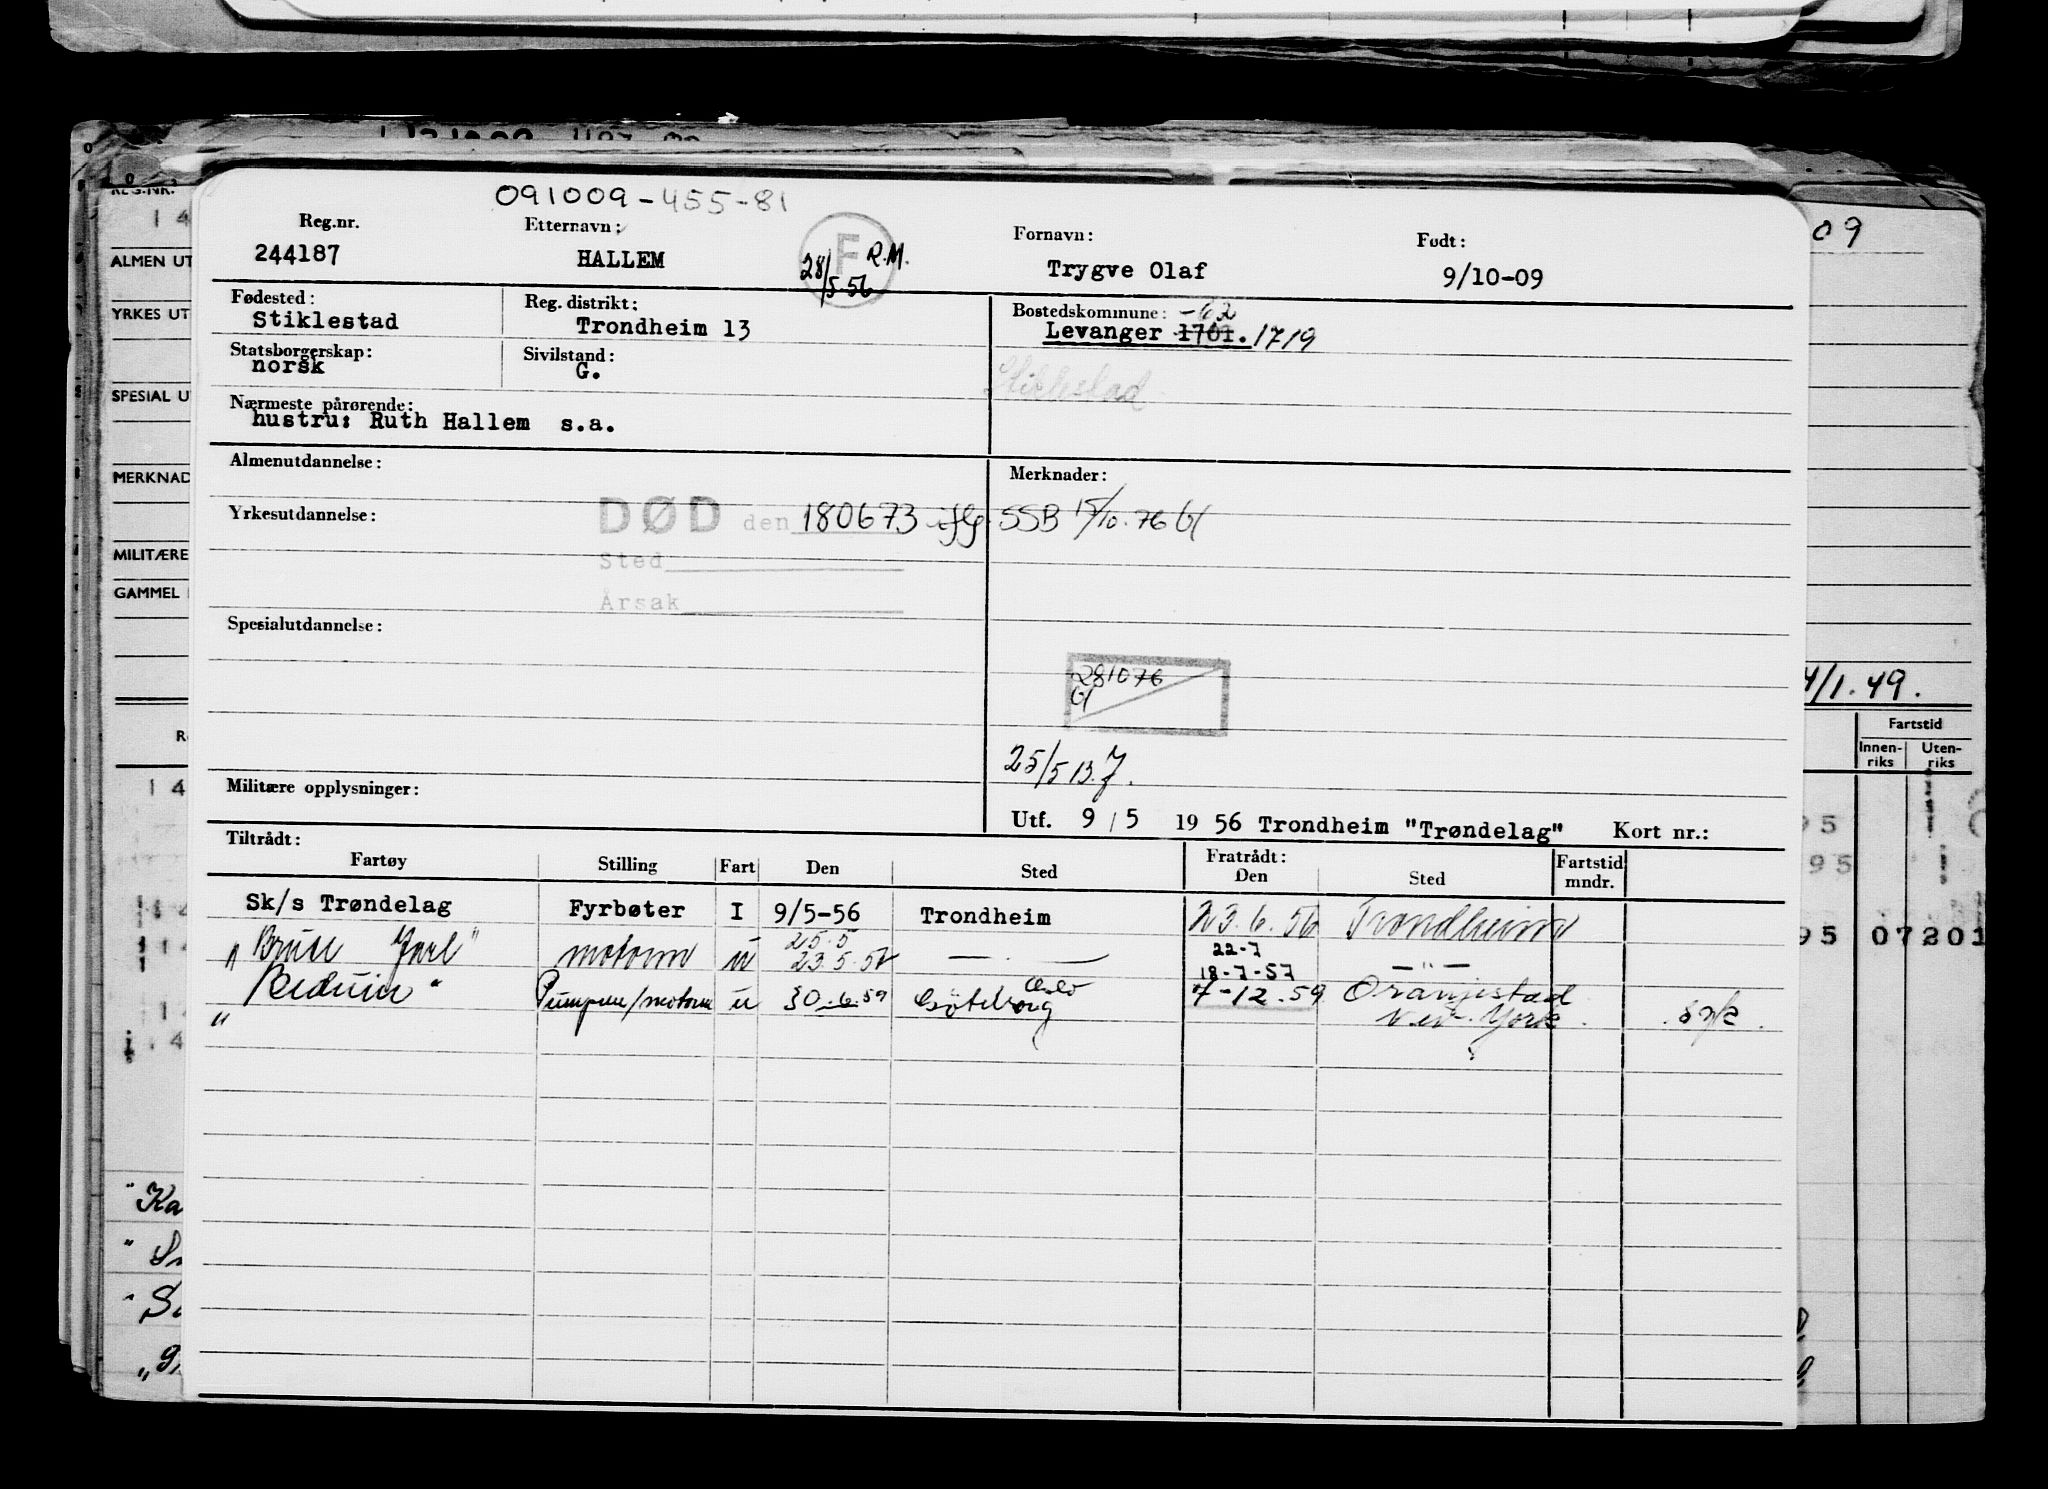 091009-455-81
Reg.nr. Etternavn: Fornavn: Født:
244187 HALLEM F R.M. Trygve Olaf 9/10-09
28/5-56
Fødested: Reg. distrikt: Bostedskommune: -62
Stiklestad Trondheim 13 Levanger 1701. 1719
Statsborgerskap: Sivilstand:
norsk G. Stiklestad
Nærmeste pårørende:
hustru: Ruth Hallem s.a.
Almenutdannelse: Merknader:
Yrkesutdannelse: DØD den 180673 iflg. SSB 15/10.76
Sted
Årsak
Spesialutdannelse:
281076
25/5
Militære opplysninger:
Utf. 9/5 1956 Trondheim "Trøndelag" Kort nr.:
Tiltrådt: Fratrådt: Fartstid
Fartøy Stilling Fart Den Sted Den Sted mndr.
Sk/s Trøndelag Fyrbøter I 9/5-56 Trondheim 23.6.56 Trondheim
25.5 22-7
" Bruse Jarl" motorm u 23.5.57 — . — 18-7-57 — " —
Beduin " Pumpem/motorm u 30.6.59 Göteborg Oslo 7-12.59 Oranjestad
" New York syk.
REG.NR.
14
ALMEN UT
YRKES UT
SPESIAL U
MERKNAD
MILITÆRE
GAMMEL
09
4/1.49.
Fartstid
Innen-riks Uten-riks
14
95
95
95 07201
"Ka